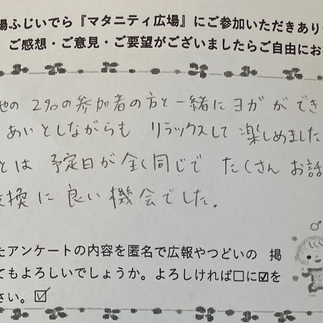 場ふじいでら『マタニティ広場』にご参加いただきあり
ご感想・ご意見・ご要望がございましたらご自由にお
他の2名の参加者の方と一緒にヨガができ
あいとしながらも リラックスして楽しめました
とは 予定日が全く同じで たくさんお話
交換に良い機会でした.
たアンケートの内容を匿名で広報やつどいの 掲
てもよろしいでしょうか。よろしければ□に☑を
さい。☑